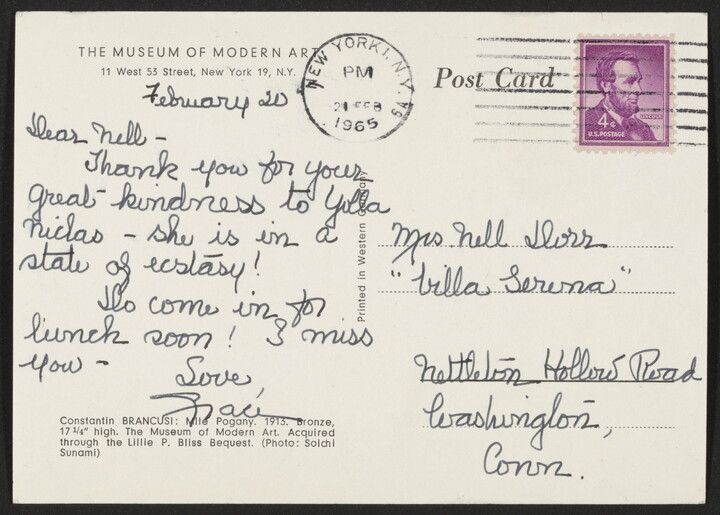 THE MUSEUM OF MODERN ART
11 West 53 Street, New York 19, N.Y.
February 20
Dear Nell -
Thank you for your
great kindness to Yilla
Niclas - she is in a
state of ecstasy!
Do come in for
lunch soon! I miss
you -
Love,
Grace
Constantin BRANCUSI: Mlle Pogany. 1913. Bronze,
17 1/4" high. The Museum of Modern Art. Acquired
through the Lillie P. Bliss Bequest. (Photo: Soichi
Sunami)
Printed in Western Germany
NEW YORK 1, N.Y.
PM
21 FEB
1965
Post Card
4¢
LINCOLN
U.S. POSTAGE
Mrs. Nell Dorr
"Villa Serena"
Nettleton Hollow Road
Washington,
Conn.